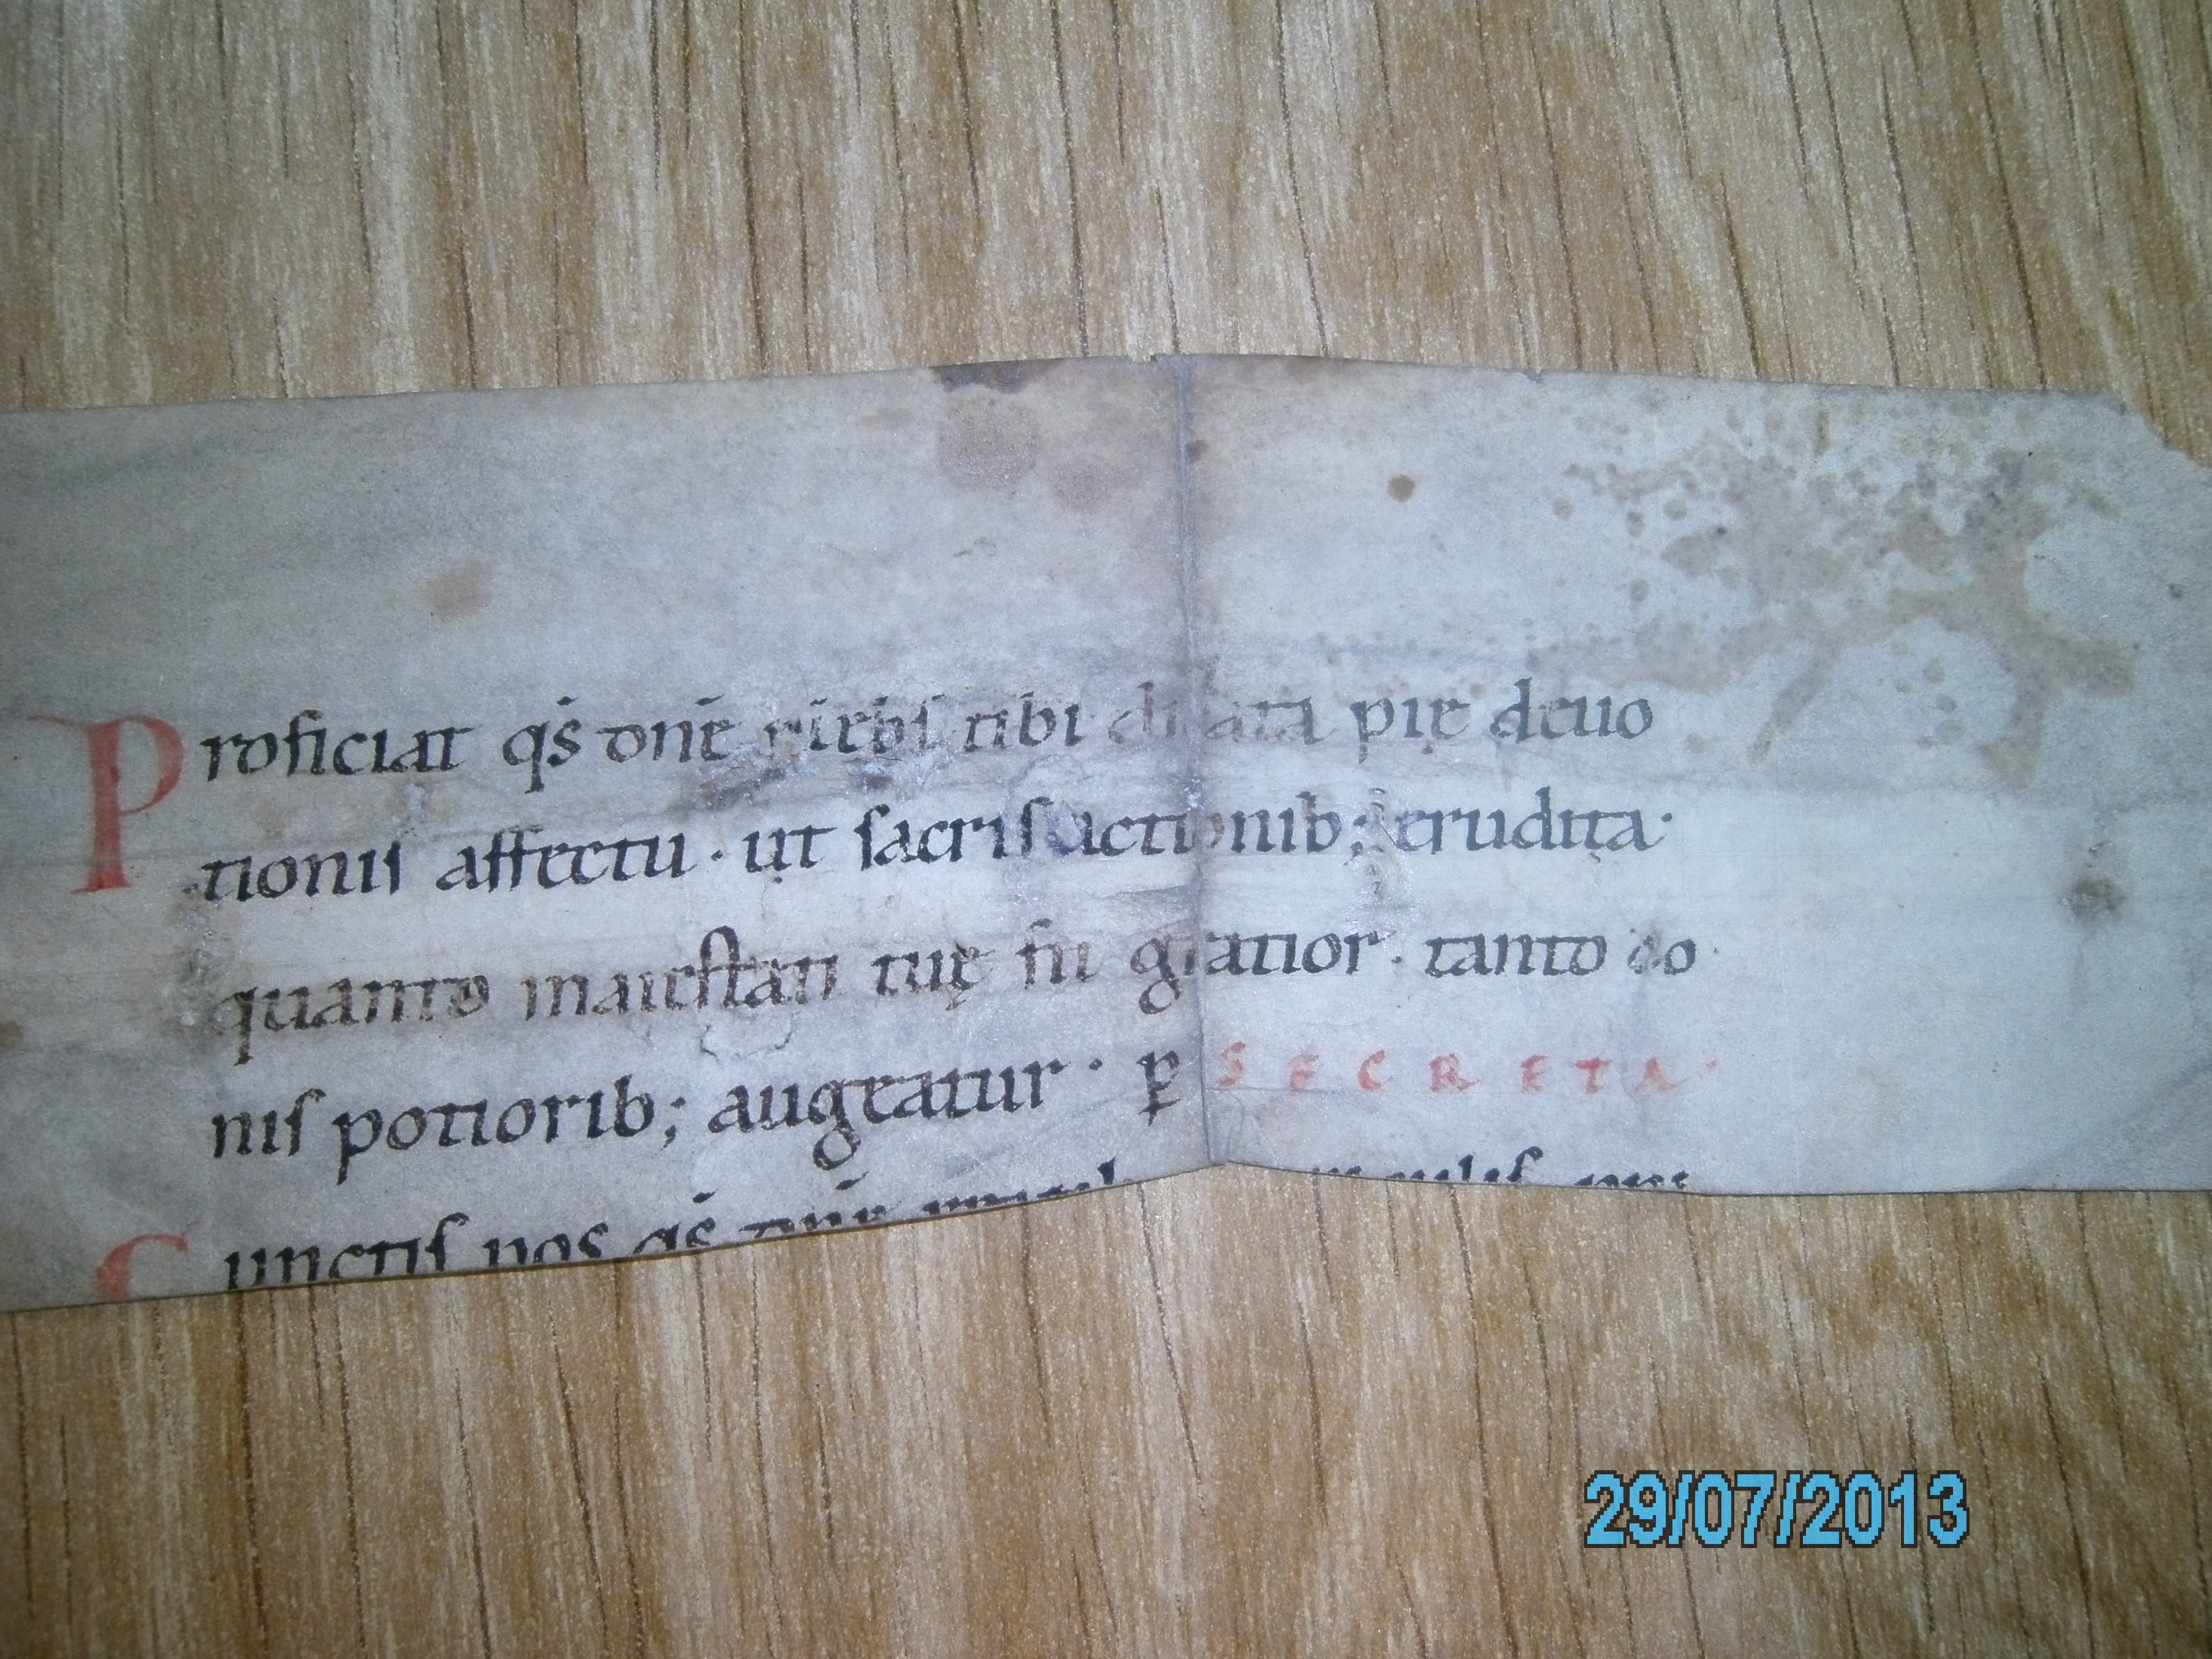 Proficiat qs̄ dn̄e tibi dicata pię deuo
tionis affectu · ut sacris actionib; erudita ·
quanto maiestati tuę fit gratior · tanto do
nis potiorib; augeatur · p̱ SECRETA ·
Cunctis nos qs̄ dn̄e
29/07/2013